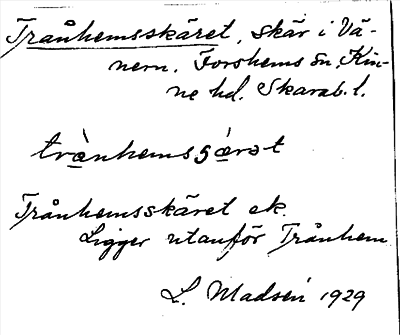 Trånhemsskäret, skär i Vä-
nern. Forshems sn, Kin-
ne hd. Skarab. l.
trànhemsʃæ̀rət
Trånhemsskäret ek.
Ligger utanför Trånhem.
L. Madsén 1929